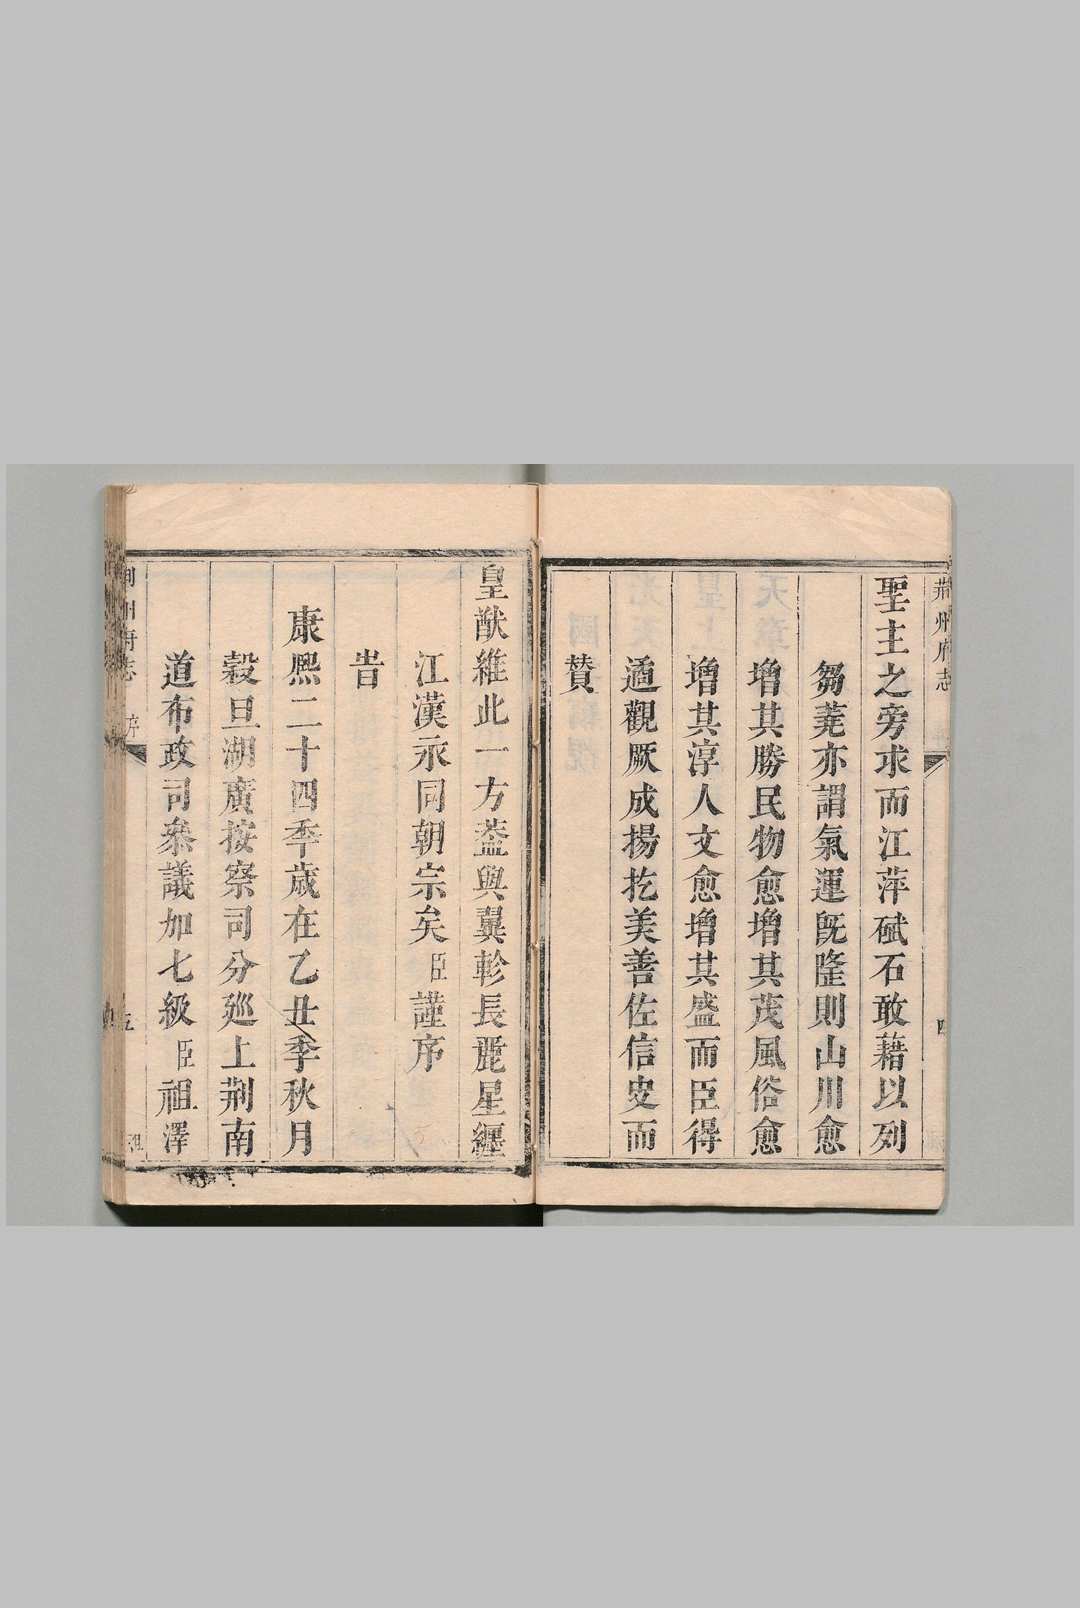 荆州府志
四
聖主之旁求而江萍碔石敢藉以列
芻蕘亦謂氣運旣隆則山川愈
增其勝民物愈增其茂風俗愈
增其淳人文愈增其盛而臣得
遹觀厥成揚扢美善佐信史而
賛
皇猷維此一方葢與翼軫長麗星纒
江漢永同朝宗矣臣謹序
旹
康熈二十四季歲在乙丑季秋月
穀旦湖廣按察司分廵上荆南
道布政司叅議加七級臣祖澤
州府志
序
五